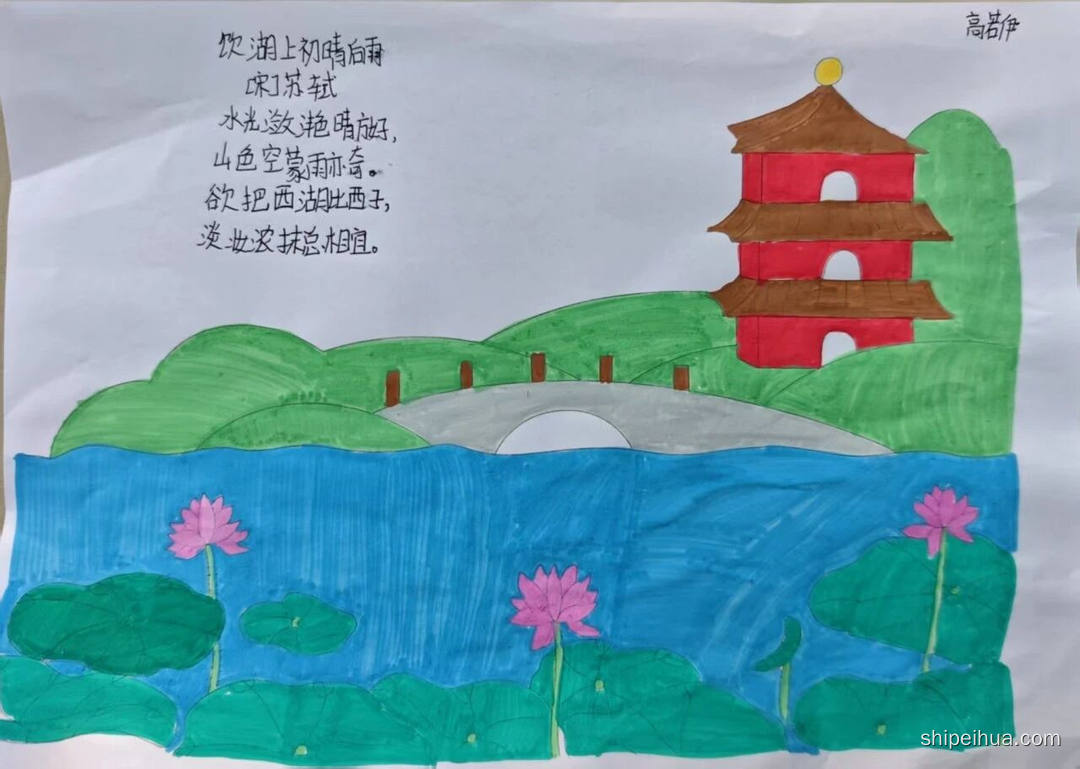 高若伊
饮湖上初晴后雨
[宋]苏轼
水光潋滟晴方好,
山色空蒙雨亦奇。
欲把西湖比西子,
淡妆浓抹总相宜。
shipeihua.com